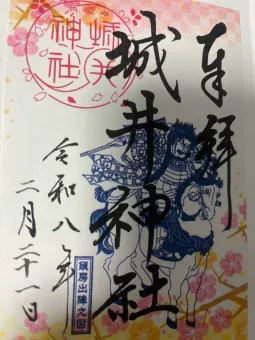 奉拝
城井神社
令和八年
二月二十一日
城井
神社
鎮房出陣之図